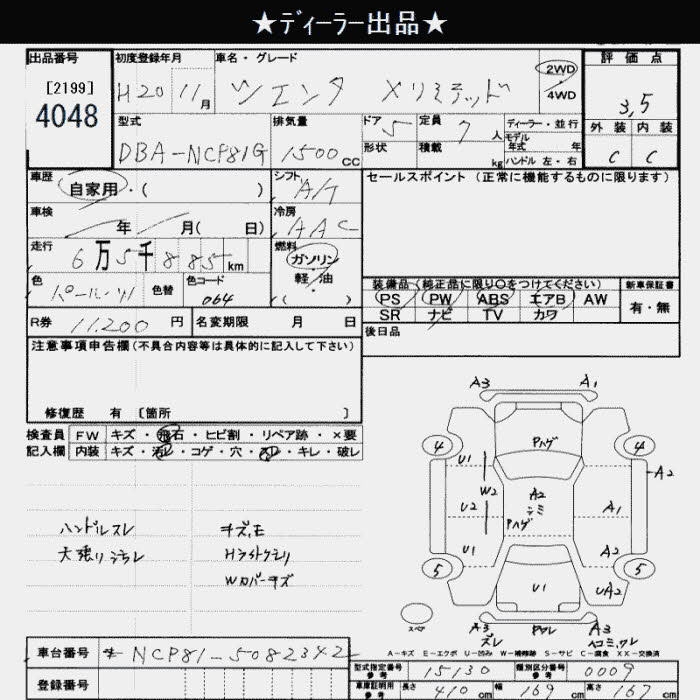 ★ディーラー出品★
出品番号
[2199]
4048
初度登録年月
H20 11月
車名・グレード
シエンタ Xリミテッド
2WD
4WD
評価点
3,5
外装 内装
C C
型式
DBA-NCP81G
排気量
1500cc
ドア 5
形状
定員 7人
積載 kg
ディーラー・並行
モデル年式 年
ハンドル 左・右
車歴
自家用・( )
シフト
A/T
セールスポイント(正常に機能するものに限ります)
車検
年 月( 日)
冷房
AAC
走行
6万5千885km
燃料
ガソリン
軽・油
( )
色
パール・ツイ
色替
色コード
064
装備品(純正品に限り○をつけてください)
新車保証書
PS PW ABS エアB AW
SR ナビ TV カワ
有・無
R券 11,200円
名変期限 月 日
後日品
注意事項申告欄(不具合内容等は具体的に記入して下さい)
修復歴 有 [箇所 ]
検査員記入欄
FW キズ・飛石・ヒビ割・リペア跡・×要
内装 キズ・汚レ・コゲ・穴・スレ・キレ・破レ
ハンドルスレ
天張リヨゴレ
キズ,E
Hライトクモリ
Wカバーキズ
A3 A1
4 4
Pハゲ
U1
A2
W2
A2
シミ
U2
Pハゲ
A1
U1
A2
5 5
U1
UA2
スペア
A3
ズレ
A3
ヘコミ,ワレ
A-キズ E-エクボ U-凹み W-補修跡 S-サビ C-腐食 XX-交換済
車台番号 NCP81-5082342
登録番号
型式指定番号 参考 15130
類別区分番号 参考 0009
車庫証明用 参考 長さ 410cm 幅 169cm 高さ 167cm